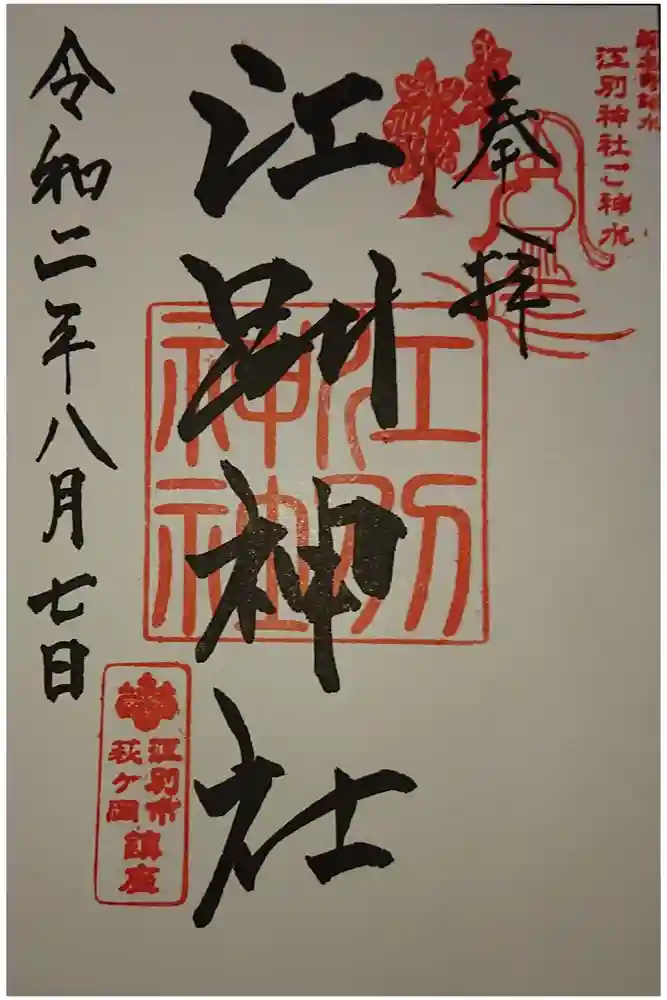 江別神社ご神水
奉拝
江別神社
江別
神社
令和二年八月七日
江別市
萩ヶ岡
鎮座